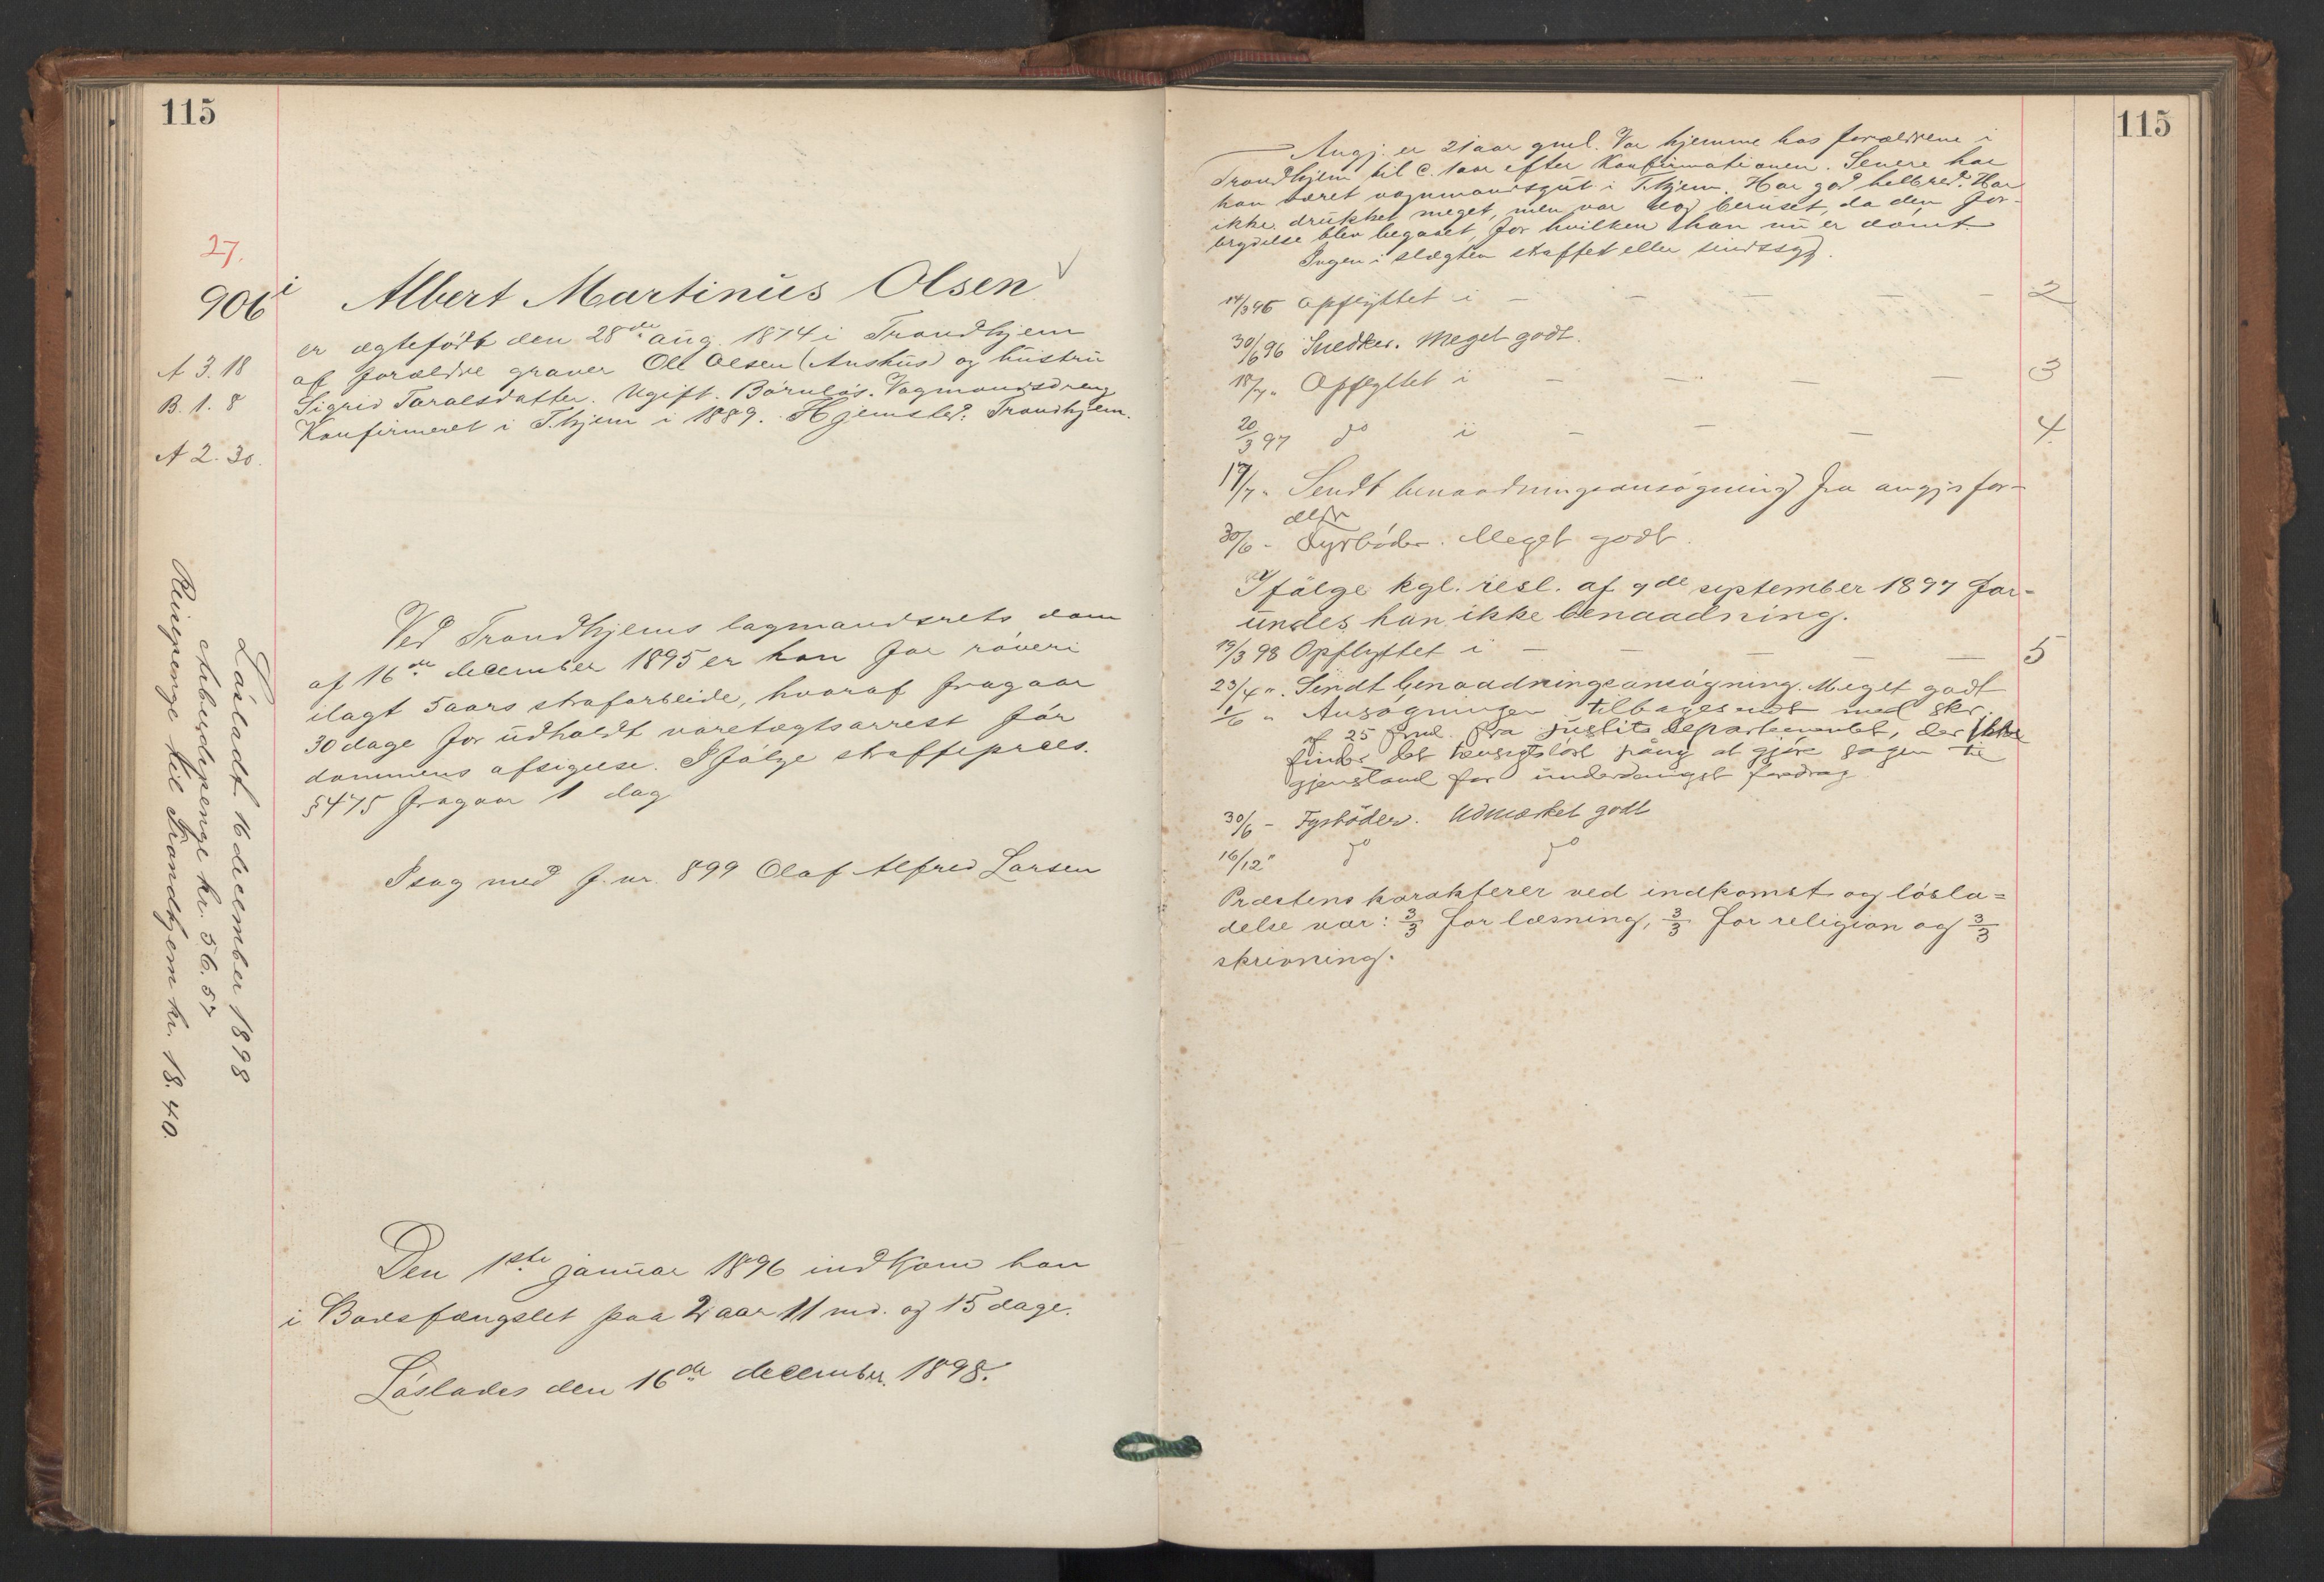 115
27.
906 i Albert Martinus Olsen
er ægtefödt den 28de aug. 1874 i Trondhjem
af forældre graver Ole Olsen (Aushus) og hustru
Sigrid Taralsdatter. Ugift. Börnlös. Vognmandsdreng
Konfirmeret i T.hjem i 1889. Hjemsted: Trondhjem.
A 3. 18
B. 1. 8
A 2. 30.
Ved Trondhjems lagmandsrets dom
af 16de december 1895 er han for röveri
ilagt 5 aars strafarbeide, hvoraf fragaar
30 dage for udholdt varetægtsarrest för
dommens afsigelse. Ifölge straffeproces.
§ 475 fragaar 1 dag
I sag med f. nr. 899 Olaf Alfred Larsen
Lösladt 16 december 1898
Arbeidspenge kr. 56.57
Reisepenge til Trondhjem kr. 18.40.
Den 1ste januar 1896 indkom han
i Bodsfængslet paa 2 aar 11 md. og 15 dage.
Löslades den 16de december 1898.
115
Angj. er 21 aar gml. Var hjemme hos forældrene i
Trondhjem til c. 1 aar efter Konfirmationen. Senere har
han været vognmandsgut i T.hjem. Har god helbred. Har
ikke drukket meget, men var dog beruset, da den for-
brydelse blev begaaet, for hvilken han nu er dömt.
Ingen i slægten straffet eller sindssyg.
14/3 96 Opflyttet i – – – – – 2
30/6 96 Snedker. Meget godt.
18/7 " Opflyttet i – – – – 3
20/3 97 do i – – – 4.
17/7 " Sendt benaadningsansögning fra angjs for-
ældre
30/6 - Fyrböder. Meget godt.
Ifölge kgl. resl. af 9de september 1897 for-
undes han ikke benaadning.
19/3 98 Opflyttet i – – – – 5
23/4 " Sendt benaadningsansögning. Meget godt
1/6 " Ansögningen tilbagesendt med skr.
af 25 f. md. fra justitsdepartementet, der ikke
finder det hensigtslöst paany at gjöre sagen til
gjenstand for underdanigst foredrag
30/6 - Fyrböder. Udmærket godt
16/12 " do do
Præstens karakterer ved indkomst og lösla=
delse var: 3/3 for læsning, 3/3 for religion og 3/3
skrivning.